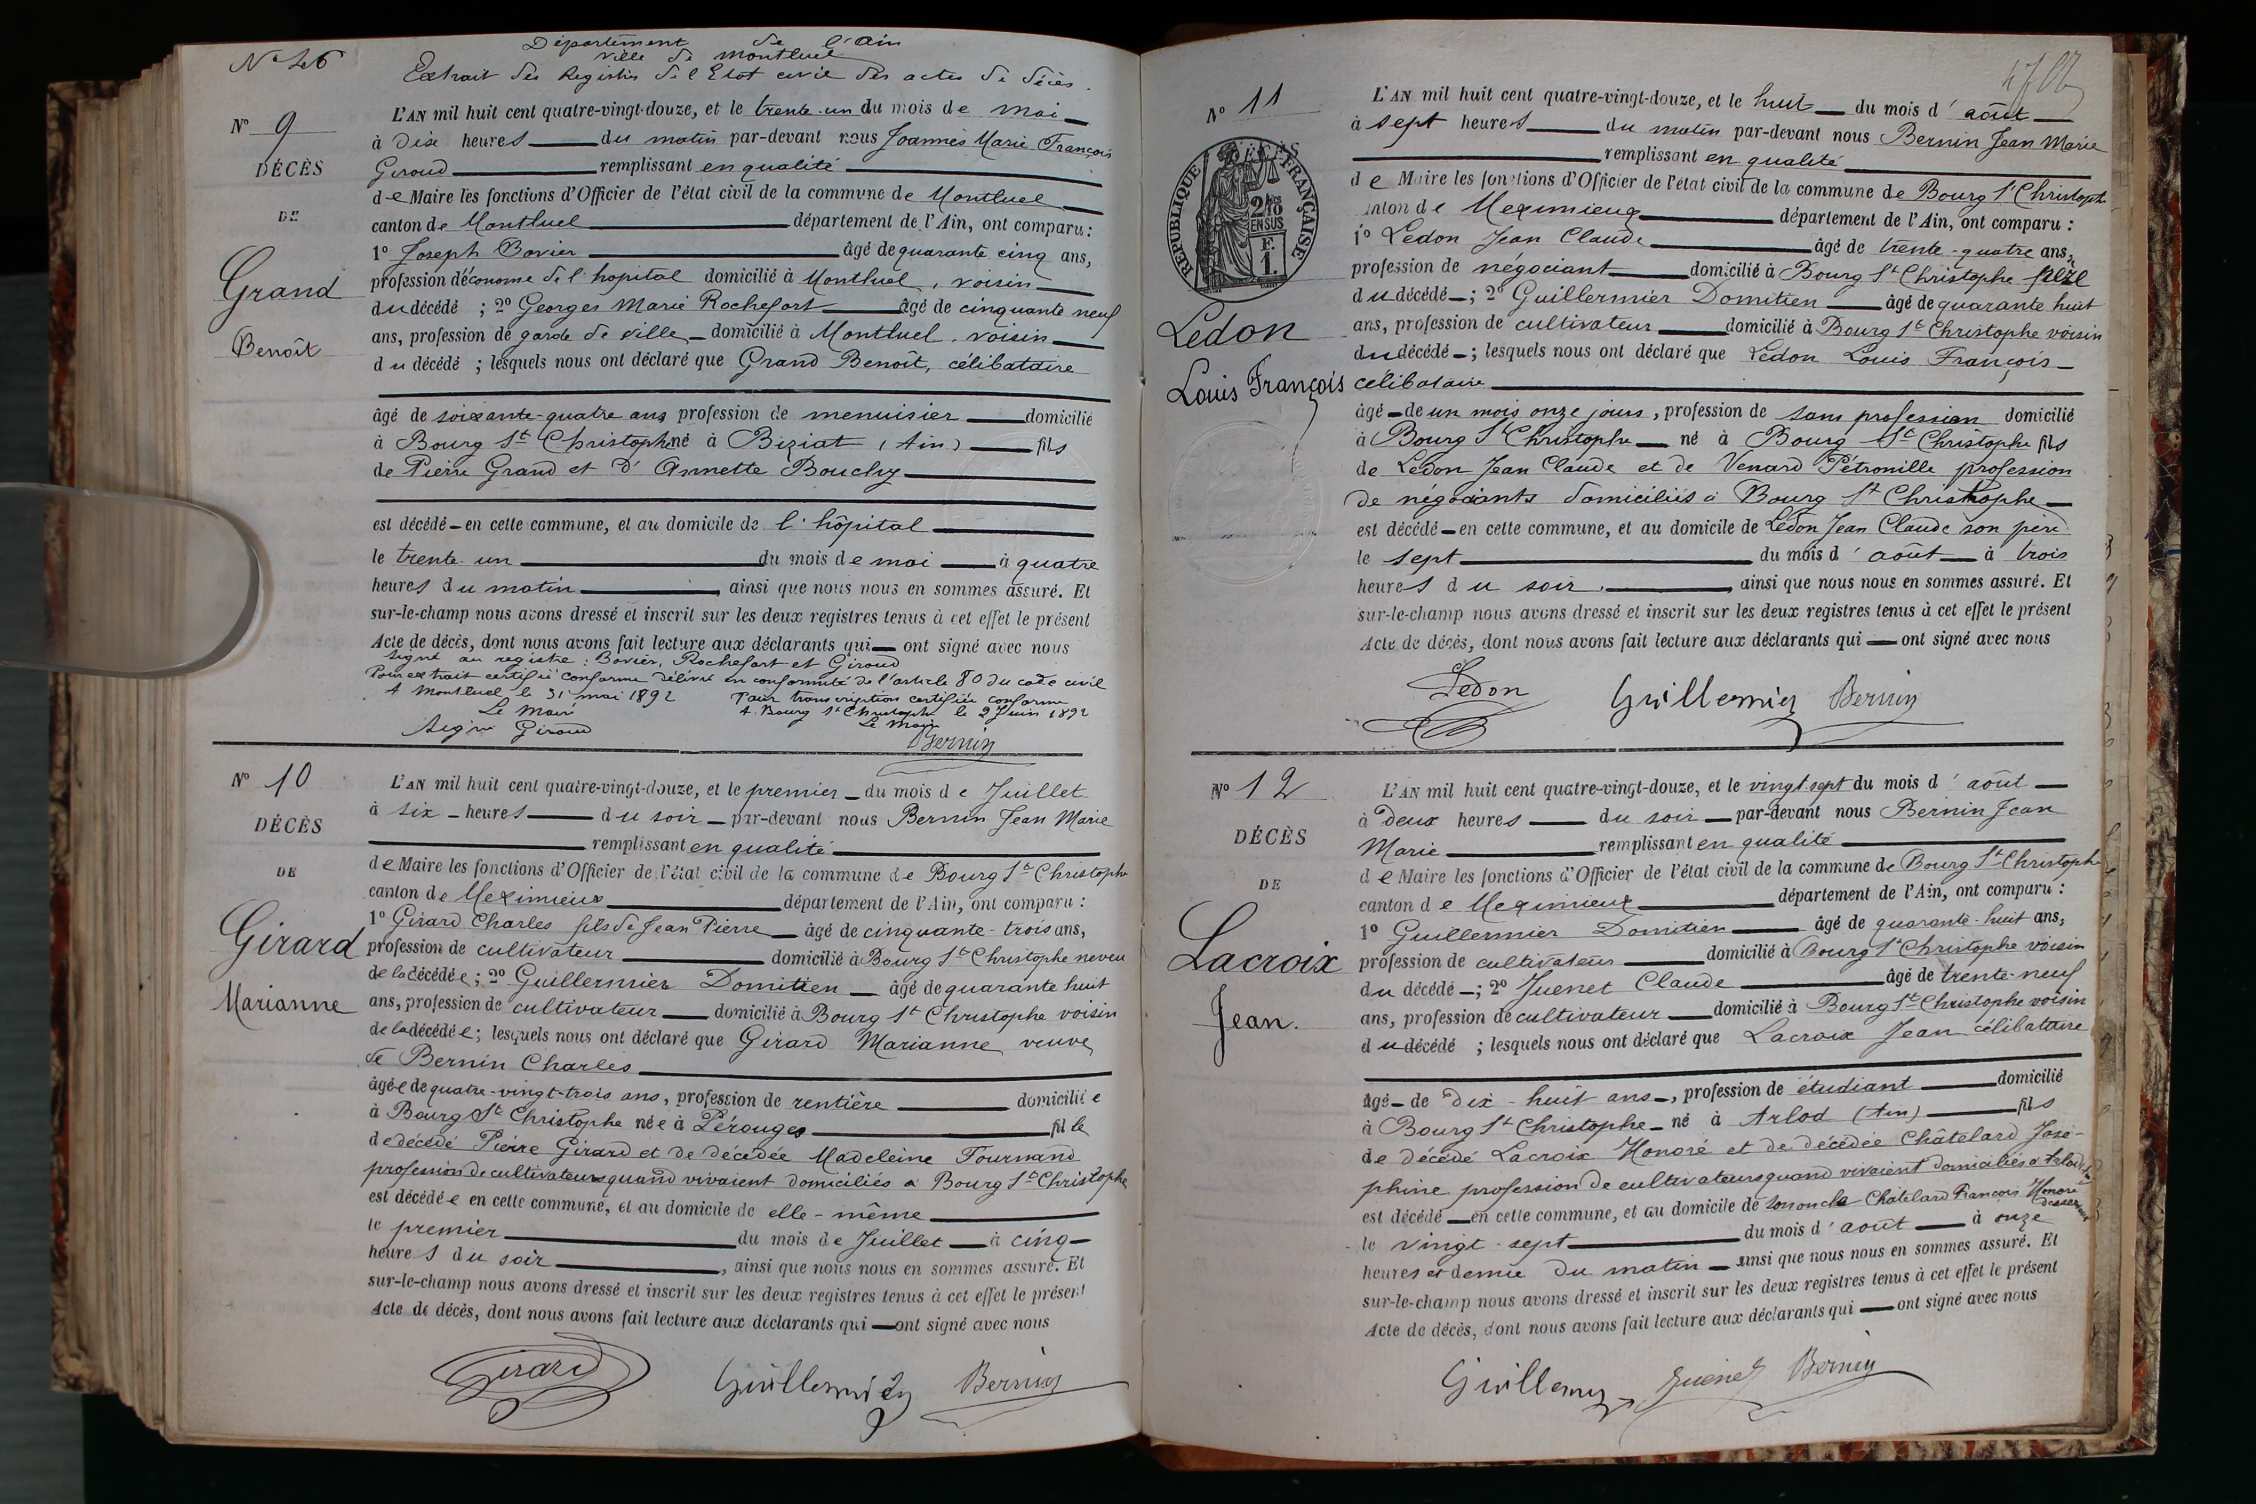 Département de l'Ain
Ville de Montluel
Extrait des Registres de l'Etat civil des actes de décès.
N° 46
N° 9
DÉCÈS
DE
Grand
Benoît
L'AN mil huit cent quatre-vingt-douze, et le trente-un du mois de mai
à dix heures du matin par-devant nous Joannès Marie François
Giroud remplissant en qualité
de Maire les fonctions d'Officier de l'état civil de la commune de Montluel
canton de Montluel département de l'Ain, ont comparu :
1° Joseph Bovier âgé de quarante cinq ans,
profession d'économe de l'hopital domicilié à Montluel, voisin
du décédé ; 2° Georges Marie Rochefort âgé de cinquante neuf
ans, profession de garde de ville domicilié à Montluel, voisin
du décédé ; lesquels nous ont déclaré que Grand Benoît, célibataire
âgé de soixante-quatre ans profession de menuisier domicilié
à Bourg St Christophe né à Biziat (Ain) fils
de Pierre Grand et d'Annette Bouchy
est décédé en cette commune, et au domicile de l'hôpital
le trente-un du mois de mai à quatre
heures du matin ainsi que nous nous en sommes assuré. Et
sur-le-champ nous avons dressé et inscrit sur les deux registres tenus à cet effet le présent
Acte de décès, dont nous avons fait lecture aux déclarants qui ont signé avec nous
Signé au registre : Bovier, Rochefort et Giroud
Pour extrait certifié conforme délivré en conformité de l'article 80 du code civil
A Montluel le 31 mai 1892
Le Maire
Signé Giroud
Pour transcription certifiée conforme
A Bourg St Christophe le 2 Juin 1892
Le Maire
Bernin
N° 10
DÉCÈS
DE
Girard
Marianne
L'AN mil huit cent quatre-vingt-douze, et le premier du mois de Juillet
à six heures du soir par-devant nous Bernin Jean Marie
remplissant en qualité
de Maire les fonctions d'Officier de l'état civil de la commune de Bourg St Christophe
canton de Meximieux département de l'Ain, ont comparu :
1° Girard Charles fils de Jean Pierre âgé de cinquante-trois ans,
profession de cultivateur domicilié à Bourg St Christophe neveu
de la décédée ; 2° Guillermier Domitien âgé de quarante huit
ans, profession de cultivateur domicilié à Bourg St Christophe voisin
de la décédée ; lesquels nous ont déclaré que Girard Marianne veuve
de Bernin Charles
âgée de quatre-vingt-trois ans, profession de rentière domiciliée
à Bourg St Christophe née à Pérouges fille
de décédé Pierre Girard et de décédée Madeleine Fournand
profession de cultivateurs quand vivaient domiciliés à Bourg St Christophe
est décédée en cette commune, et au domicile de elle-même
le premier du mois de Juillet à cinq
heures du soir, ainsi que nous nous en sommes assuré. Et
sur-le-champ nous avons dressé et inscrit sur les deux registres tenus à cet effet le présent
Acte de décès, dont nous avons fait lecture aux déclarants qui ont signé avec nous
Girard Guillermier Bernin
N° 11
DÉCÈS
RÉPUBLIQUE FRANÇAISE
2/10 EN SUS
F. 1.
Ledon
Louis François
L'AN mil huit cent quatre-vingt-douze, et le huit du mois d'août
à sept heures du matin par-devant nous Bernin Jean Marie
remplissant en qualité
de Maire les fonctions d'Officier de l'état civil de la commune de Bourg St Christophe
canton de Meximieux département de l'Ain, ont comparu :
1° Ledon Jean Claude âgé de trente-quatre ans,
profession de négociant domicilié à Bourg St Christophe père
du décédé ; 2° Guillermier Domitien âgé de quarante huit
ans, profession de cultivateur domicilié à Bourg St Christophe voisin
du décédé ; lesquels nous ont déclaré que Ledon Louis François
célibataire
âgé de un mois onze jours, profession de sans profession domicilié
à Bourg St Christophe né à Bourg St Christophe fils
de Ledon Jean Claude et de Venard Pétronille profession
de négociants domiciliés à Bourg St Christophe
est décédé en cette commune, et au domicile de Ledon Jean Claude son père
le sept du mois d'août à trois
heures du soir, ainsi que nous nous en sommes assuré. Et
sur-le-champ nous avons dressé et inscrit sur les deux registres tenus à cet effet le présent
Acte de décès, dont nous avons fait lecture aux déclarants qui ont signé avec nous
Ledon Guillermier Bernin
N° 12
DÉCÈS
DE
Lacroix
Jean.
L'AN mil huit cent quatre-vingt-douze, et le vingt-sept du mois d'août
à deux heures du soir par-devant nous Bernin Jean
Marie remplissant en qualité
de Maire les fonctions d'Officier de l'état civil de la commune de Bourg St Christophe
canton de Meximieux département de l'Ain, ont comparu :
1° Guillermier Domitien âgé de quarante-huit ans,
profession de cultivateur domicilié à Bourg St Christophe voisin
du décédé ; 2° Juenet Claude âgé de trente-neuf
ans, profession de cultivateur domicilié à Bourg St Christophe voisin
du décédé ; lesquels nous ont déclaré que Lacroix Jean célibataire
âgé de dix-huit ans, profession de étudiant domicilié
à Bourg St Christophe né à Arlod (Ain) fils
de décédé Lacroix Honoré et de décédée Châtelard José-
phine profession de cultivateurs quand vivaient domiciliés à Arlod
est décédé en cette commune, et au domicile de son oncle Châtelard François Honoré
le vingt-sept du mois d'août à onze
heures et demie du matin ainsi que nous nous en sommes assuré. Et
sur-le-champ nous avons dressé et inscrit sur les deux registres tenus à cet effet le présent
Acte de décès, dont nous avons fait lecture aux déclarants qui ont signé avec nous
Guillermier Juenet Bernin